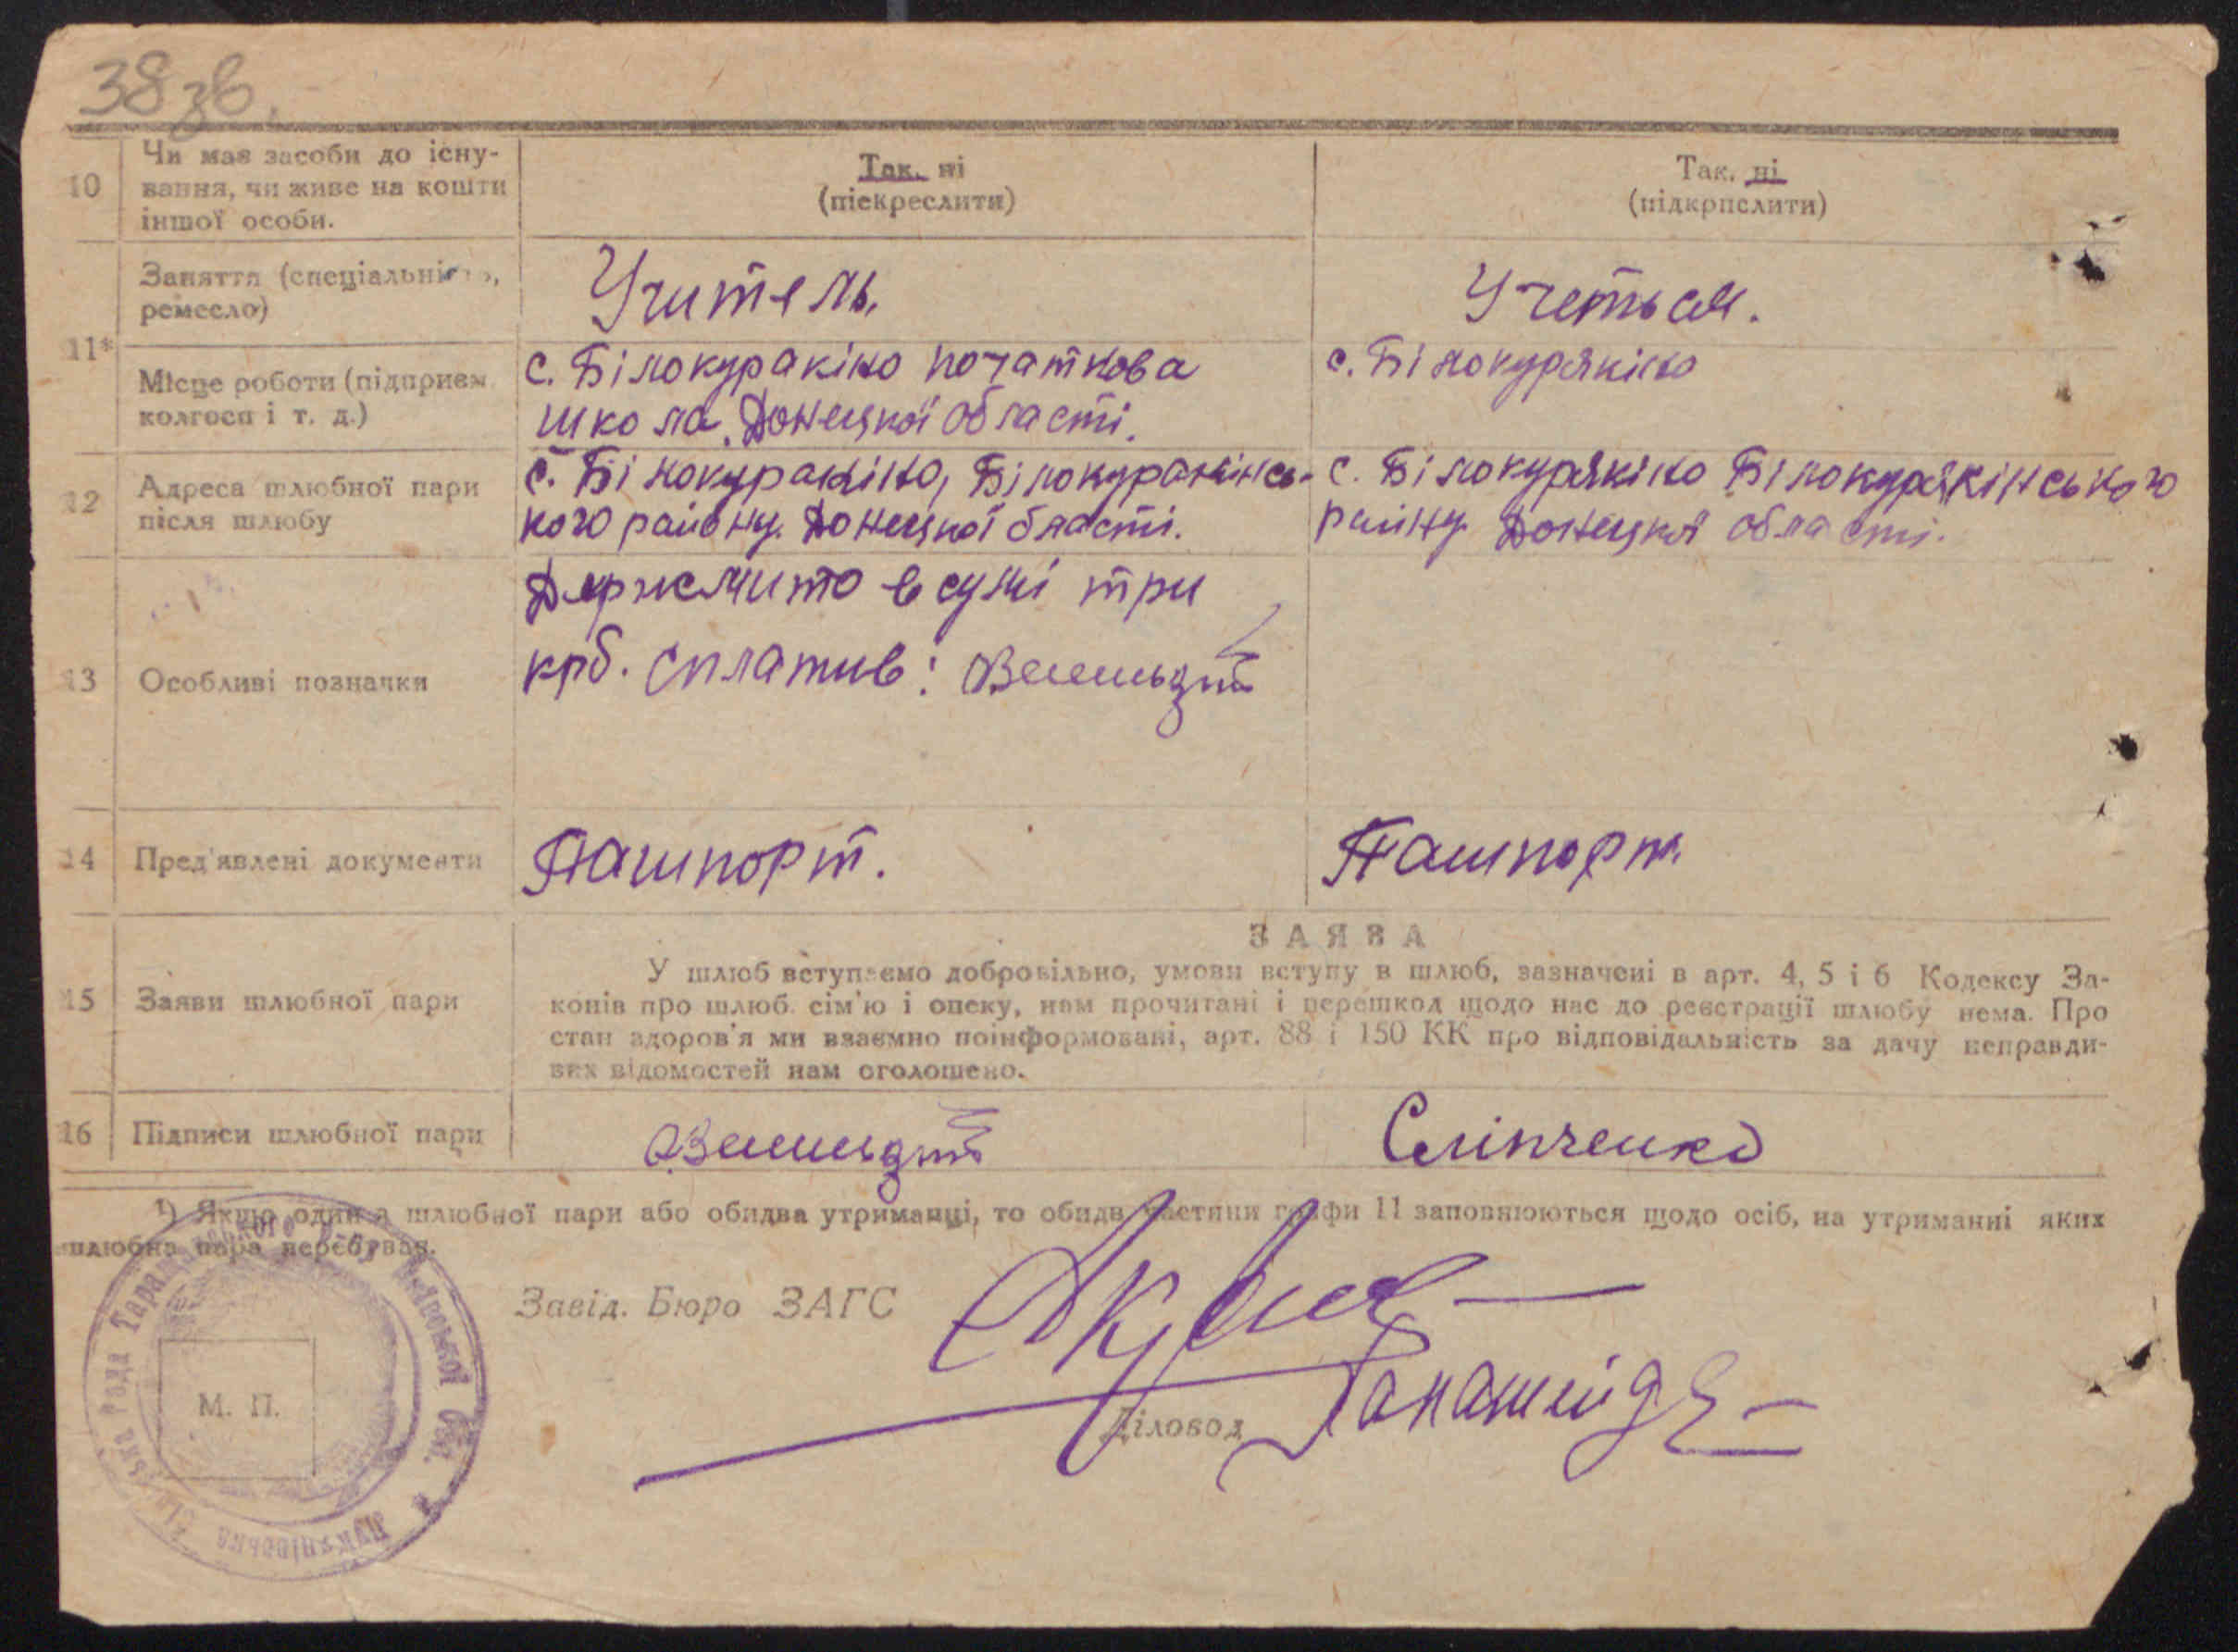 38зв.
10
Чи має засоби до існу-
вання, чи живе на кошти
іншої особи.
Так. ні
(піекреслити)
Так. ні
(підкрпслити)
11*
Заняття (спеціальність,
ремесло)
Учитель.
Учеться.
Місце роботи (підприєм
колгосп і т. д.)
с. Білокуракіно початкова
школа. Донецкої області.
с. Білокуракіно
12
Адреса шлюбної пари
після шлюбу
с. Білокуракіно, Білокуракінсь-
кого району. Донецкої бласті.
с. Білокуракіно Білокуракінського
райну Донецкої області.
13
Особливі позначки
Держмито в сумі три
крб. сплатив:
14
Пред'явлені документи
Пашпорт.
Пашпорт.
15
Заяви шлюбної пари
ЗАЯВА
У шлюб вступаємо добровільно, умови вступу в шлюб, зазначені в арт. 4, 5 і 6 Кодексу За-
конів про шлюб. сім'ю і опеку, нам прочитані і перешкод щодо нас до реєстрації шлюбу нема. Про
стан здоров'я ми взаємно поінформовані, арт. 88 і 150 КК про відповідальність за дачу неправди-
вих відомостей нам оголошено.
16
Підписи шлюбної пари
Слінченко
¹) Якщо один з шлюбної пари або обидва утриманці, то обидв частини графи 11 заповнюються щодо осіб, на утриманні яких
шлюбна пара перебуває.
Завід. Бюро ЗАГС
М. П.
Діловод